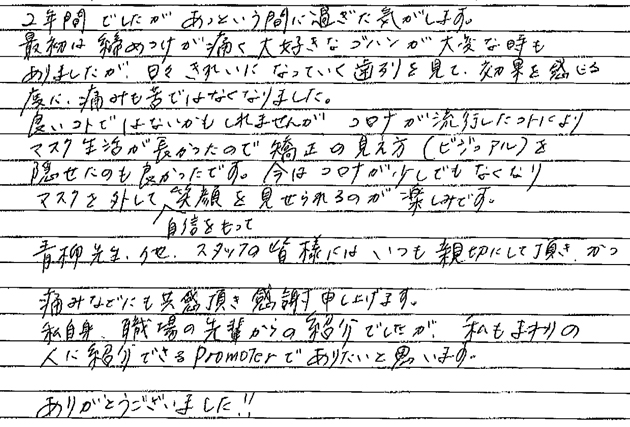 2年間でしたがあっという間に過ぎた気がします。
最初は締めつけが痛く大好きなゴハンが大変な時も
ありましたが、日々きれいになっていく歯列を見て、効果を感じる
度に、痛みも苦ではなくなりました。
良いコトではないかもしれませんが コロナが流行したコトにより
マスク生活が長かったので矯正の見え方(ビジュアル)を
隠せたのも良かったです。今はコロナが少しでもなくなり
マスクを外して笑顔を見せられるのが楽しみです。
自信をもって
青柳先生、他、スタッフの皆様にはいつも親切にして頂き、かつ
痛みなどにも共感頂き感謝申し上げます。
私自身、職場の先輩からの紹介でしたが、私もまわりの
人に紹介できるPromoterでありたいと思います。
ありがとうございました!!